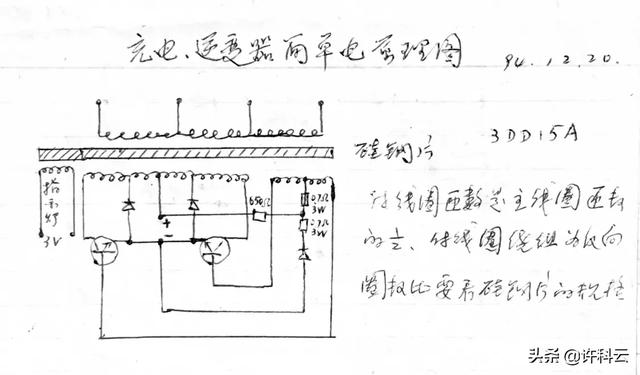 充电、逆变器间单电原理图 94.12.20.
硅钢片 3DD15A
指示灯
3V
650Ω
3W
3W
付线圈匝数是主线圈匝数
的 、付线圈绕组为反向
圈数比要看硅钢片的规格
头条 @许科云